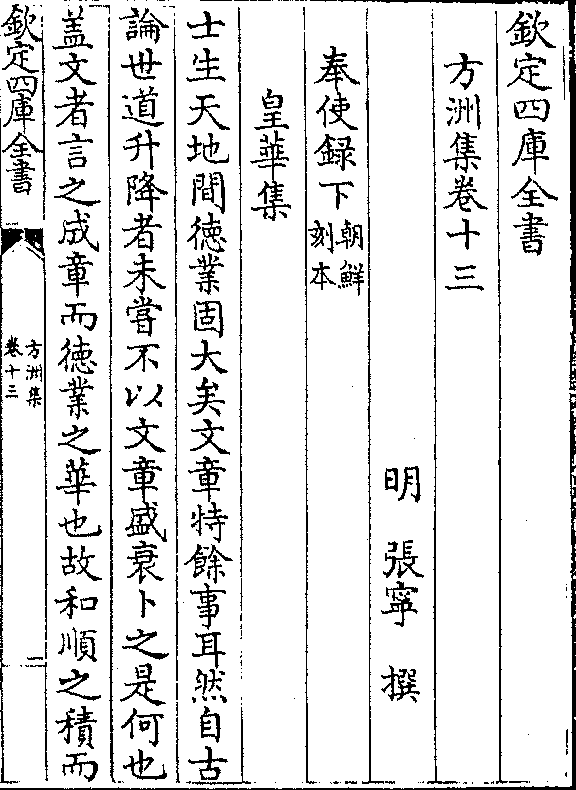 欽定四庫全書
方洲集卷十三
明 張寧 撰
奉使録下朝鮮刻本
皇華集
士生天地間徳業固大矣文章特餘事耳然自古
論世道升降者未嘗不以文章盛衰卜之是何也
盖文者言之成章而徳業之華也故和順之積而
欽定四庫全書
方洲集
卷十三
一